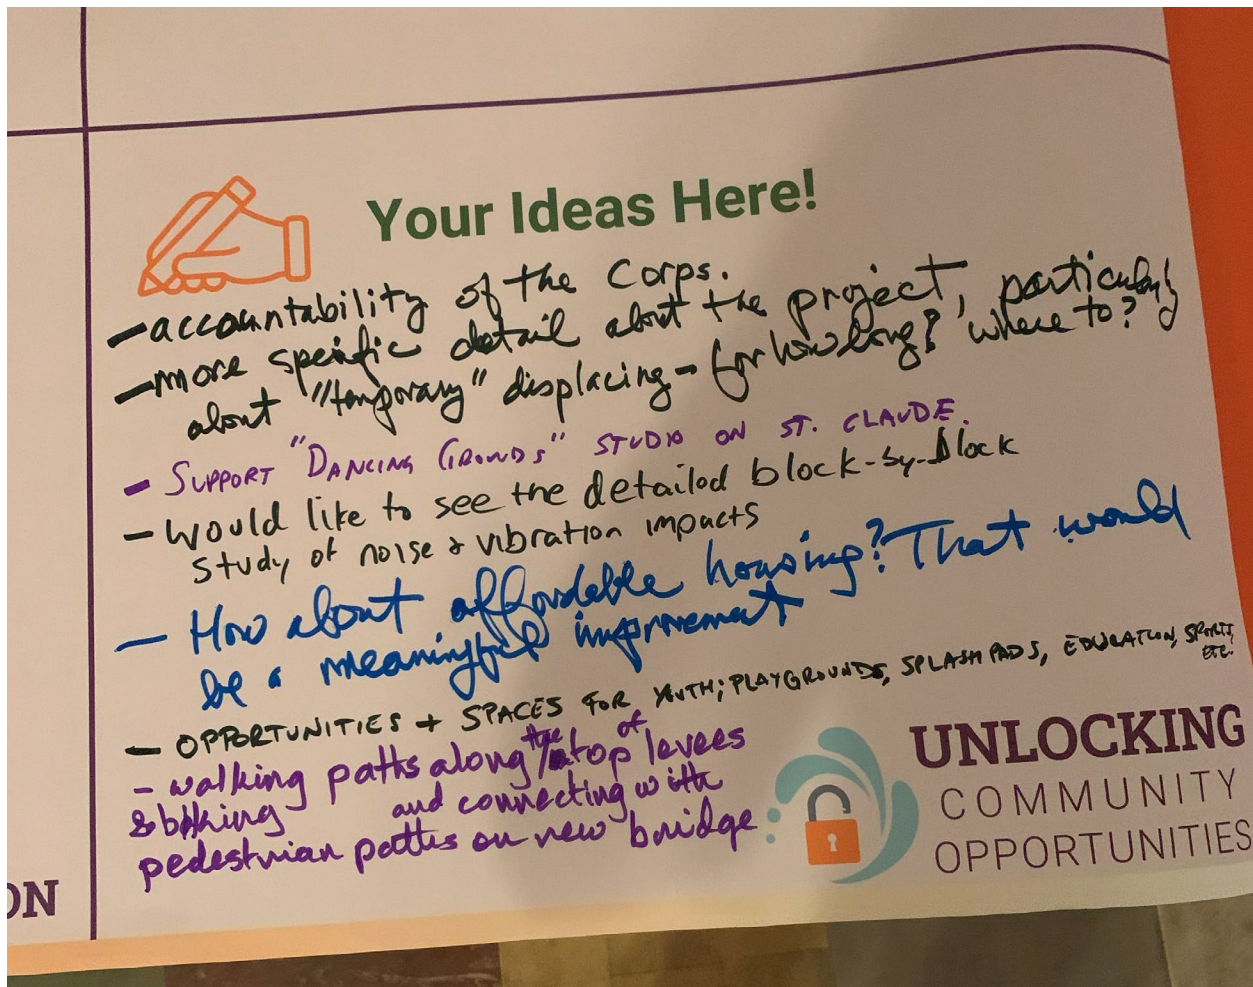 Your Ideas Here!
- accountability of the Corps.
- more specific detail about the project, particularly
about "temporary" displacing - for how long? where to?
- SUPPORT "DANCING GROUNDS" STUDIO ON ST. CLAUDE.
- would like to see the detailed block-by-block
study of noise & vibration impacts
- How about affordable housing? That would
be a meaningful improvement
- OPPORTUNITIES + SPACES FOR YOUTH; PLAYGROUNDS, SPLASH PADS, EDUCATION, SPORTS,
ETC.
- walking paths along the top of levees
& biking and connecting with
pedestrian paths on new bridge
UNLOCKING
COMMUNITY
OPPORTUNITIES
ON